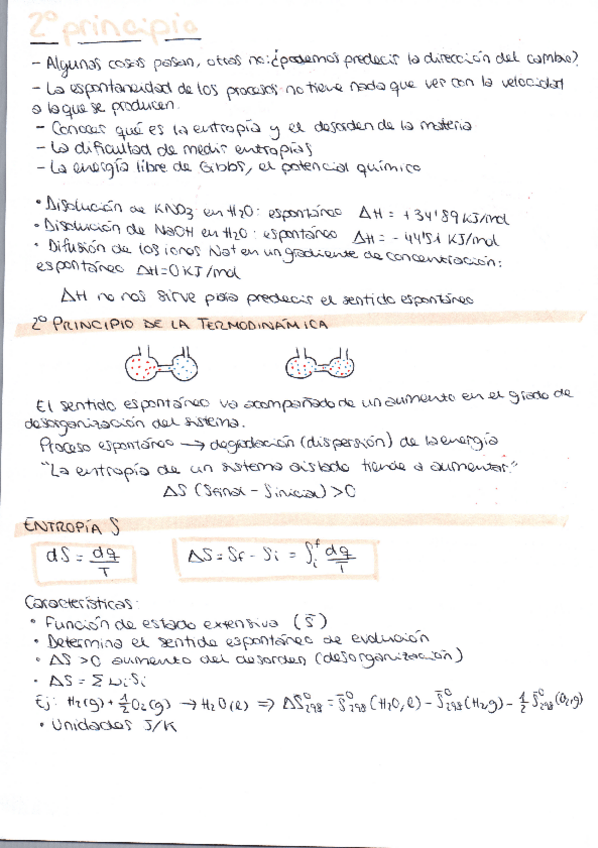 2º principio
- Algunas cosas pasan, otras no: ¿podemos predecir la dirección del cambio?
- La espontaneidad de los procesos no tiene nada que ver con la velocidad
a la que se producen.
- Conocer qué es la entropía y el desorden de la materia
- La dificultad de medir entropías
- La energía libre de Gibbs, el potencial químico
• Disolución de KNO3 en H2O: espontáneo ΔH = +34'89 KJ/mol
• Disolución de NaOH en H2O: espontáneo ΔH = -44'51 KJ/mol
• Difusión de los iones Na+ en un gradiente de concentración:
espontáneo ΔH=0 KJ/mol
ΔH no nos sirve para predecir el sentido espontáneo
2º PRINCIPIO DE LA TERMODINÁMICA
El sentido espontáneo va acompañado de un aumento en el grado de
desorganización del sistema.
Proceso espontáneo → degradación (dispersión) de la energía
"La entropía de un sistema aislado tiende a aumentar."
ΔS (Sfinal - Sinicial) > 0
ENTROPÍA S
dS = dq/T ΔS = Sf - Si = ∫i^f dq/T
Características:
• Función de estado extensiva (S̄)
• Determina el sentido espontáneo de evolución
• ΔS>0 aumento del desorden (desorganización)
• ΔS = Σ νi S̄i
Ej: H2(g) + 1/2 O2(g) → H2O(l) ⇒ ΔS°298 = S̄°298 (H2O, l) - S̄°298 (H2,g) - 1/2 S̄°298 (O2,g)
• Unidades J/K